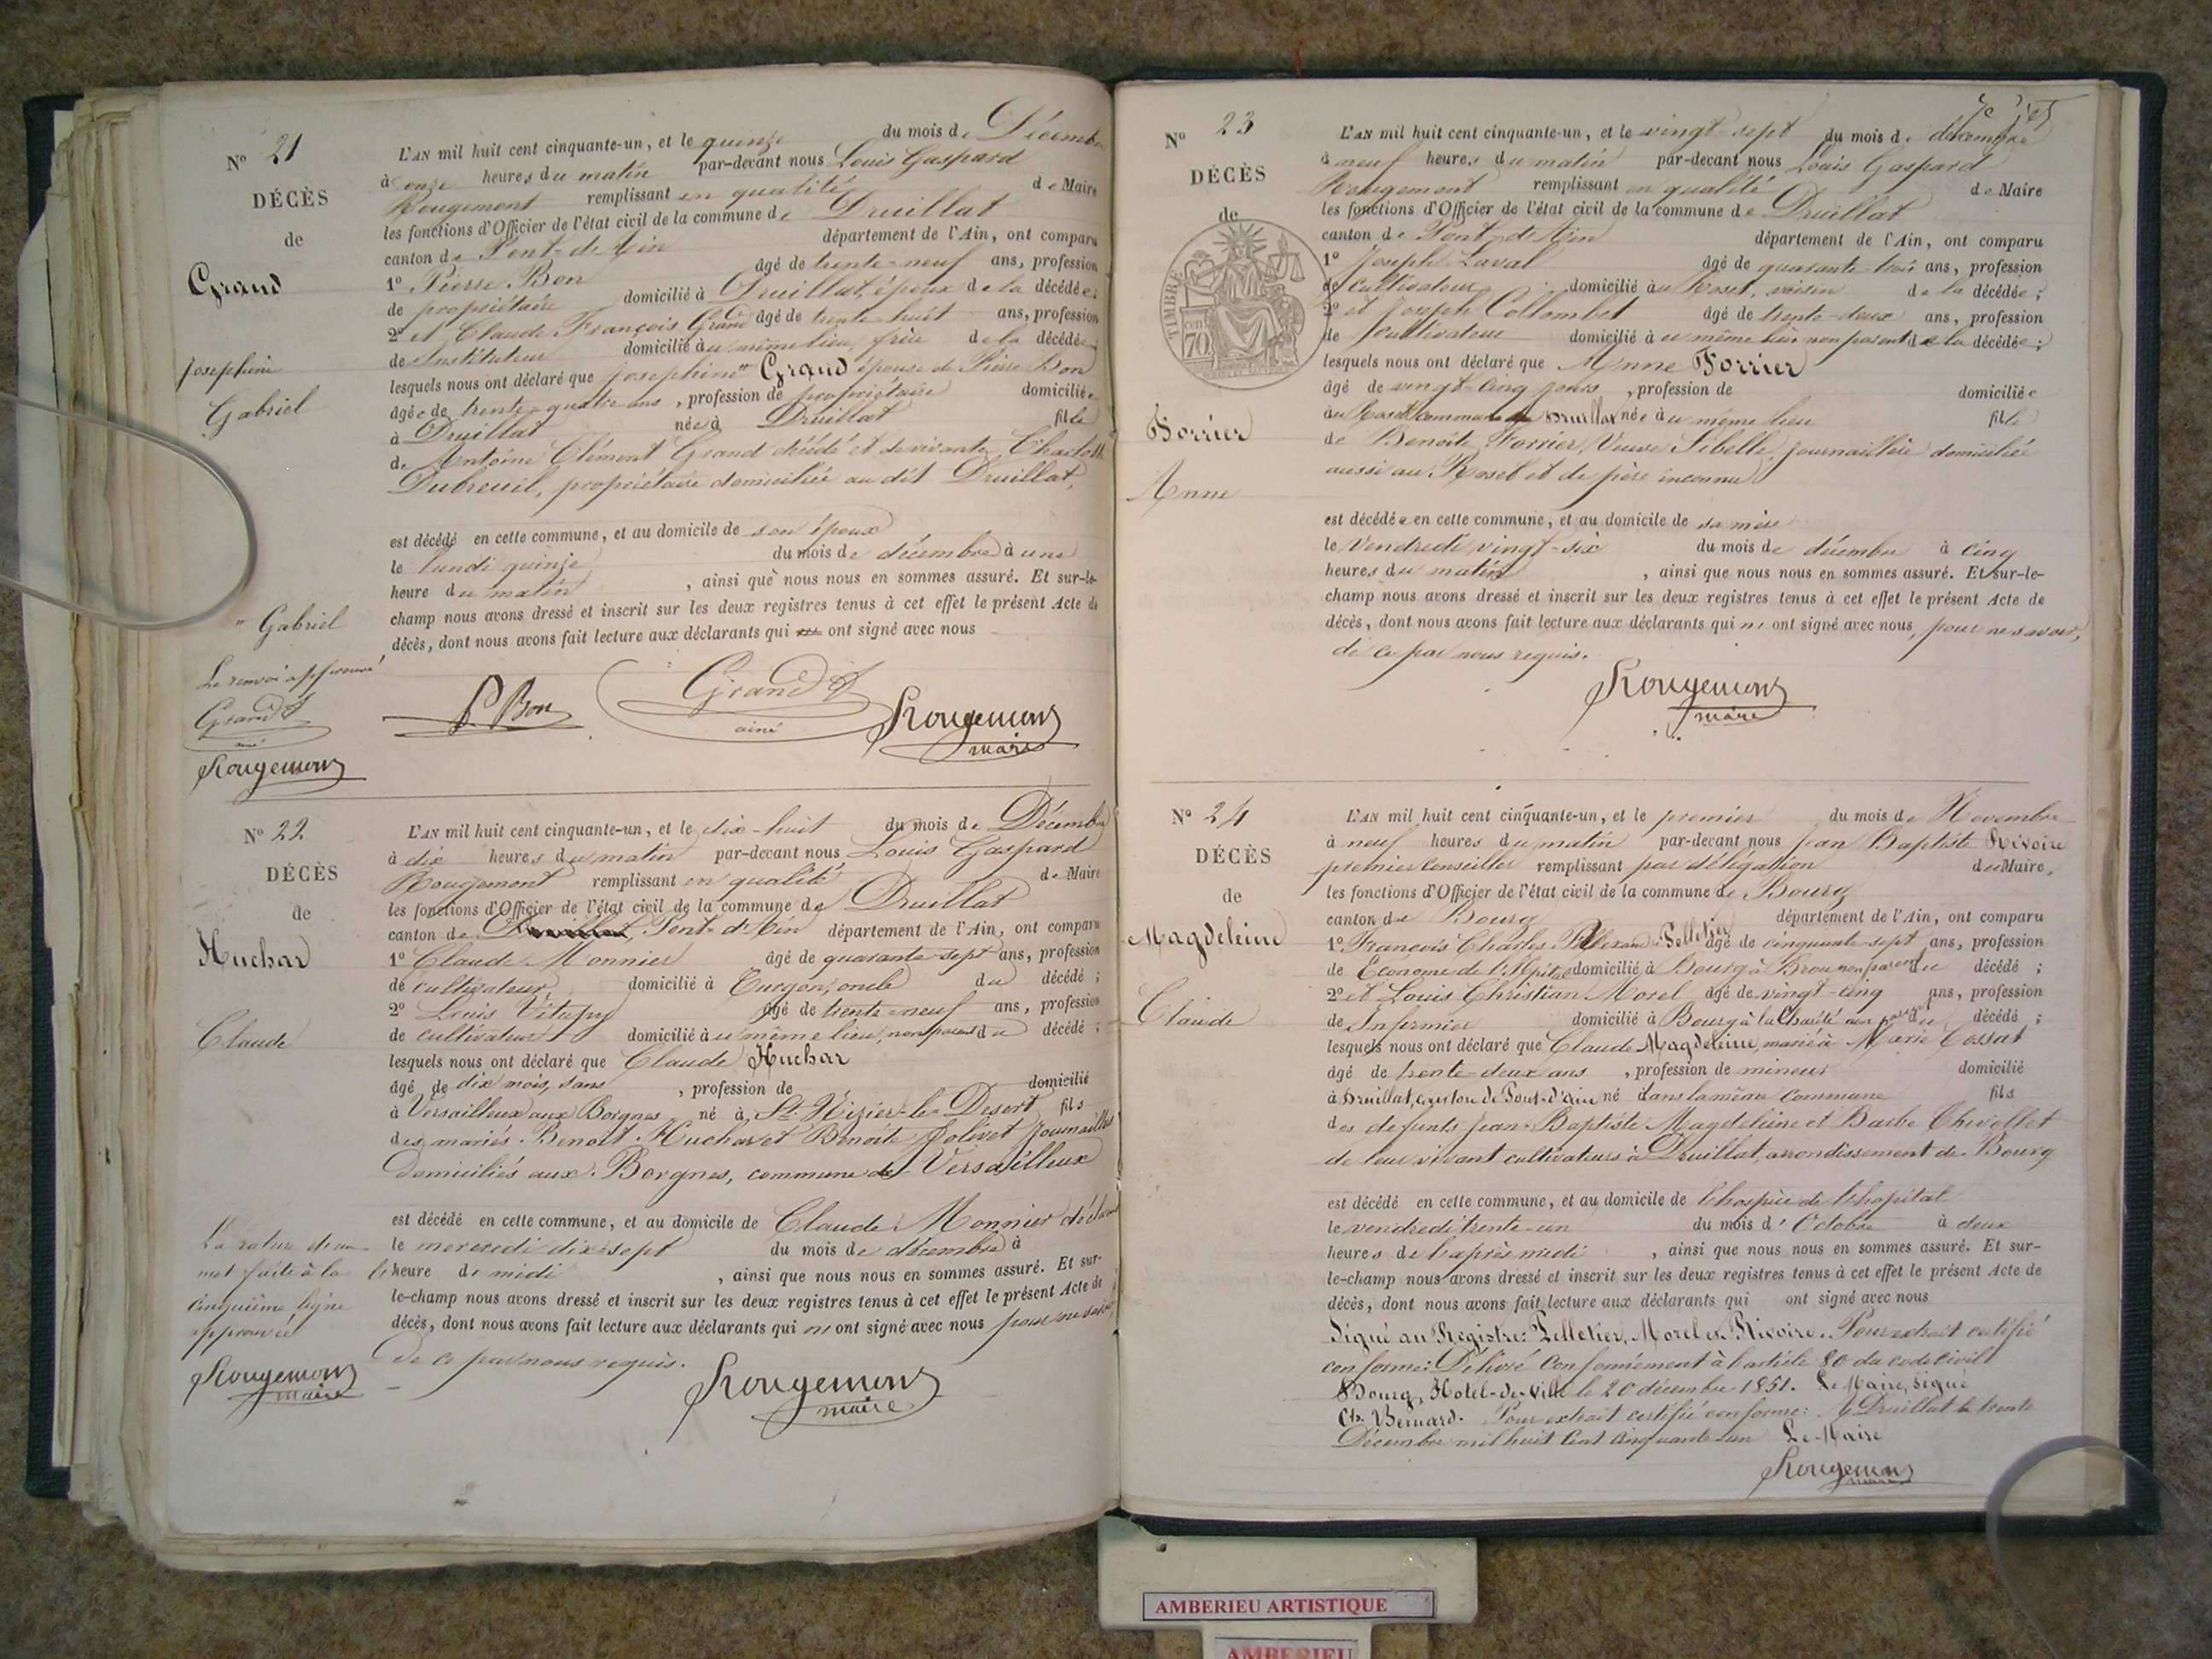 N° 21
DÉCÈS
de
Grand
Josephine
Gabriel
" Gabriel
Le renvoi approuvé
Grand
ainé
Rougemont
L'AN mil huit cent cinquante-un, et le quinze du mois de Décembre
à onze heures du matin par-devant nous Louis Gaspard
Rougemont remplissant en qualité de Maire
les fonctions d'Officier de l'état civil de la commune de Druillat
canton de Pont-d'Ain département de l'Ain, ont comparu
1° Pierre Bon âgé de trente-neuf ans, profession
de propriétaire domicilié à Druillat, époux de la décédée;
2° et Claude François Grand âgé de trente-huit ans, profession
de Instituteur domicilié au même lieu, frère de la décédée;
lesquels nous ont déclaré que Josephine " Grand épouse de Pierre Bon
âgée de trente-quatre ans, profession de propriétaire domiciliée
à Druillat née à Druillat fille
de Antoine Clément Grand décédé et de vivante Charlotte
Dubreuil, propriétaire domiciliée au dit Druillat,
est décédé en cette commune, et au domicile de son époux
le lundi quinze du mois de décembre à une
heure du matin, ainsi que nous nous en sommes assuré. Et sur-le-
champ nous avons dressé et inscrit sur les deux registres tenus à cet effet le présent Acte de
décès, dont nous avons fait lecture aux déclarants qui ont signé avec nous
P Bon
Grand
ainé
Rougemont
maire
N° 22
DÉCÈS
de
Huchar
Claude
La rature d'un
mot faite à la
cinquième ligne
approuvée
Rougemont
maire
L'AN mil huit cent cinquante-un, et le dix-huit du mois de Décembre
à dix heures du matin par-devant nous Louis Gaspard
Rougemont remplissant en qualité de Maire
les fonctions d'Officier de l'état civil de la commune de Druillat
canton de Pont-d'Ain département de l'Ain, ont comparu
1° Claude Monnier âgé de quarante-sept ans, profession
de cultivateur, domicilié à Turgon, oncle du décédé;
2° Louis Vitupy âgé de trente-neuf ans, profession
de cultivateur domicilié au même lieu, non parent du décédé;
lesquels nous ont déclaré que Claude Huchar
âgé de dix mois, sans, profession de domicilié
à Versailleux aux Borgnes né à St Nizier-le-Desert fils
des mariés Benoît Huchar et Benoîte Jolivet Journaillers
domiciliés aux Borgnes, commune de Versailleux
est décédé en cette commune, et au domicile de Claude Monnier déclarant
le mercredi dix-sept du mois de décembre à
heure de midi, ainsi que nous nous en sommes assuré. Et sur-
le-champ nous avons dressé et inscrit sur les deux registres tenus à cet effet le présent Acte de
décès, dont nous avons fait lecture aux déclarants qui n'ont signé avec nous pour ne savoir,
de ce par nous requis.
Rougemont
maire
N° 23
DÉCÈS
de
TIMBRE
70 cent
Forrier
Anne
L'AN mil huit cent cinquante-un, et le vingt-sept du mois de décembre
à neuf heures du matin par-devant nous Louis Gaspard
Rougemont remplissant en qualité de Maire
les fonctions d'Officier de l'état civil de la commune de Druillat
canton de Pont-d'Ain département de l'Ain, ont comparu
1° Joseph Laval âgé de quarante-trois ans, profession
de cultivateur domicilié au Roset, voisin de la décédée;
2° et Joseph Collombet âgé de trente-deux ans, profession
de cultivateur domicilié à u même lieu non parent de la décédée;
lesquels nous ont déclaré que Anne Forrier
âgé de vingt-cinq jours, profession de domiciliée
au Roset commune de Druillat née à u même lieu fille
de Benoîte Forrier, Veuve Sibelle, journaillère domiciliée
aussi au Roset et de père inconnu
est décédée en cette commune, et au domicile de sa mère
le Vendredi vingt-six du mois de décembre à cinq
heures du matin, ainsi que nous nous en sommes assuré. Et sur-le-
champ nous avons dressé et inscrit sur les deux registres tenus à cet effet le présent Acte de
décès, dont nous avons fait lecture aux déclarants qui n'ont signé avec nous, pour ne savoir,
de ce par nous requis.
Rougemont
maire
N° 24
DÉCÈS
de
Magdeleine
Claude
L'AN mil huit cent cinquante-un, et le premier du mois de Novembre
à neuf heures du matin par-devant nous Jean Baptiste Rivoire
premier Conseiller remplissant par délégation du Maire,
les fonctions d'Officier de l'état civil de la commune de Bourg
canton de Bourg département de l'Ain, ont comparu
1° François Charles Pelletier âgé de cinquante-sept ans, profession
de Econome de l'Hôpital domicilié à Bourg à Brou non parent du décédé;
2° et Louis Christian Morel âgé de vingt-cinq ans, profession
de Infirmier domicilié à Bourg à la Charité non parent du décédé;
lesquels nous ont déclaré que Claude Magdeleine, marié à Marie Cossat
âgé de trente-deux ans, profession de mineur domicilié
à Druillat, canton de Pont-d'ain né dans la même commune fils
des defunts Jean-Baptiste Magdeleine et Barbe Chevollet
de leur vivant cultivateurs à Druillat, arrondissement de Bourg
est décédé en cette commune, et au domicile de l'hospice de l'hopital
le vendredi trente-un du mois d'Octobre à deux
heures de l'après midi, ainsi que nous nous en sommes assuré. Et sur-
le-champ nous avons dressé et inscrit sur les deux registres tenus à cet effet le présent Acte de
décès, dont nous avons fait lecture aux déclarants qui ont signé avec nous
Signé au Registre: Pelletier, Morel et Rivoire. Pour extrait certifié
conforme: Délivré Conformément à l'article 80 du code civil
Bourg, Hotel-de-Ville le 20 décembre 1851. Le Maire, signé
Ch. Bernard. Pour extrait certifié conforme: A Druillat le trente
Décembre mil huit cent cinquante-un Le Maire
Rougemont
maire
AMBERIEU ARTISTIQUE
AMBERIEU